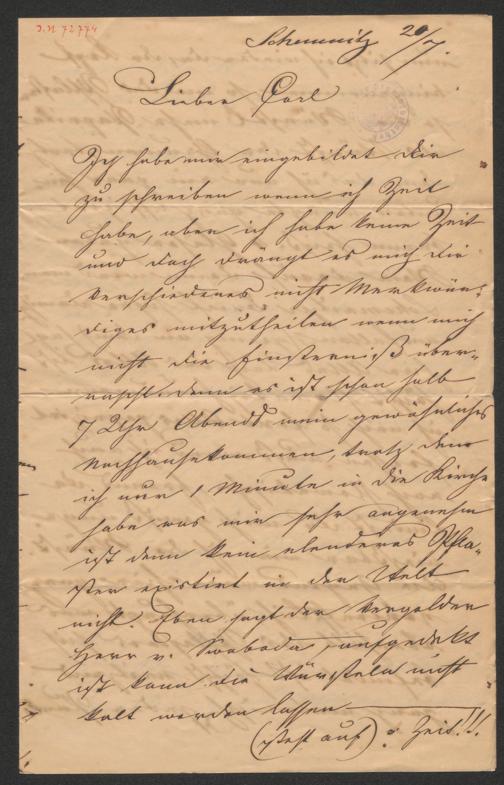 I.N 72774
Schemnitz 20/7.
Lieber Carl
Ich habe mir eingebildet dir
zu schreiben wenn ich Zeit
habe, aber ich habe keine Zeit
und doch drängt es mich dir
Verschiedenes nicht Merkwür-
diges mitzutheilen wenn mich
nicht die Finsterniß über-
rascht. denn es ist schon halb
7 Uhr Abends mein gewöhnliches
Nachhausekommen, trotz dem
ich nur 1 Minute in die Kirche
habe was mir sehr angenehm
ist denn kein elenderes Pfla-
ster existirt in der Welt
nicht. Eben sagt der Vergolder
Herr v. Swoboda, aufgedekt
ist kann die Würsteln nicht
kalt werden lassen
(steht auf) Zeit!!!